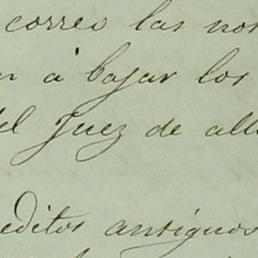 correo las not
n à bajar los
del Juez de alla
editos antiguos